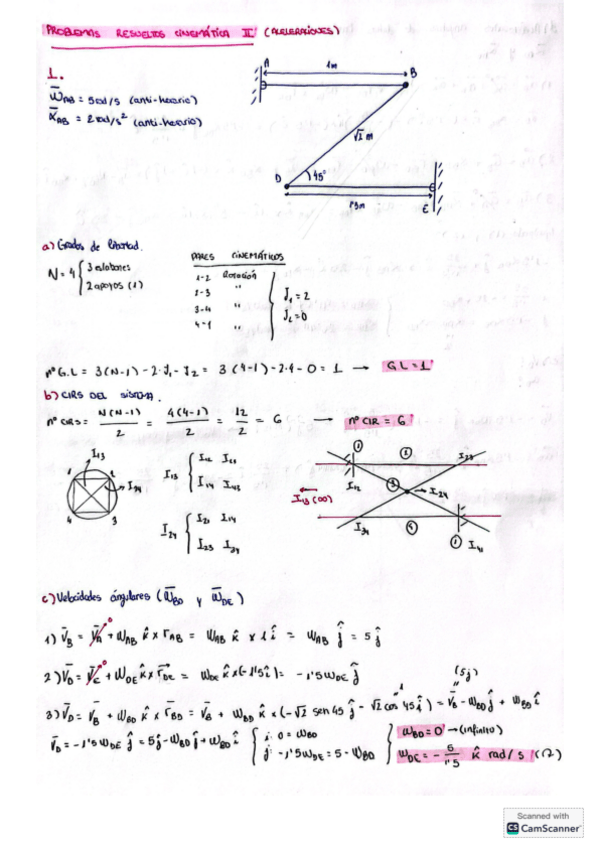 PROBLEMAS RESUELTOS CINEMÁTICA II (ACELERACIONES)
1.
W̄AB = 5 rad/s (anti-horario)
ᾱAB = 2 rad/s² (anti-horario)
A
1m
B
√2 m
D
45°
1'5m
E
a) Grados de libertad.
N = 4 { 3 eslabones
2 apoyos (1)
PARES CINEMÁTICOS
1-2 Rotación
2-3 "
3-4 "
4-1 "
J₁ = 2
J₂ = 0
nº G.L = 3(N-1) - 2·J₁ - J₂ = 3(4-1) - 2·4 - 0 = 1 → GL = 1
b) CIRS DEL SISTEMA.
nº CIRS = N(N-1)/2 = 4(4-1)/2 = 12/2 = 6 → nº CIR = 6
I13
1 2
I24
4 3
I13 { I12 I23
I14 I43
I24 { I21 I14
I23 I34
1
2
I23
I12
3
I24
I13 (∞)
I34
4
1
I41
c) Velocidades angulares (W̄BD y W̄DE)
1) V̄B = V̄A⁰ + WAB k̂ x rAB = WAB k̂ x 1î = WAB ĵ = 5ĵ
2) V̄D = V̄E⁰ + WDE k̂ x rDE = WDE k̂ x (-1'5î) = -1'5WDE ĵ
(5ĵ)
3) V̄D = V̄B + WBD k̂ x rBD = V̄B + WBD k̂ x (-√2 sen45 ĵ - √2 cos45 î) = V̄B - WBD ĵ + WBD î
V̄D = -1'5WDE ĵ = 5ĵ - WBD ĵ + WBD î
i: 0 = WBD
j: -1'5WDE = 5 - WBD
WBD = 0 → (infinito)
WDE = - 5/1'5 k̂ rad/s
Scanned with
CS CamScanner